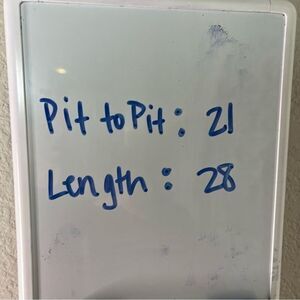 Pit to Pit: 21
Length: 28